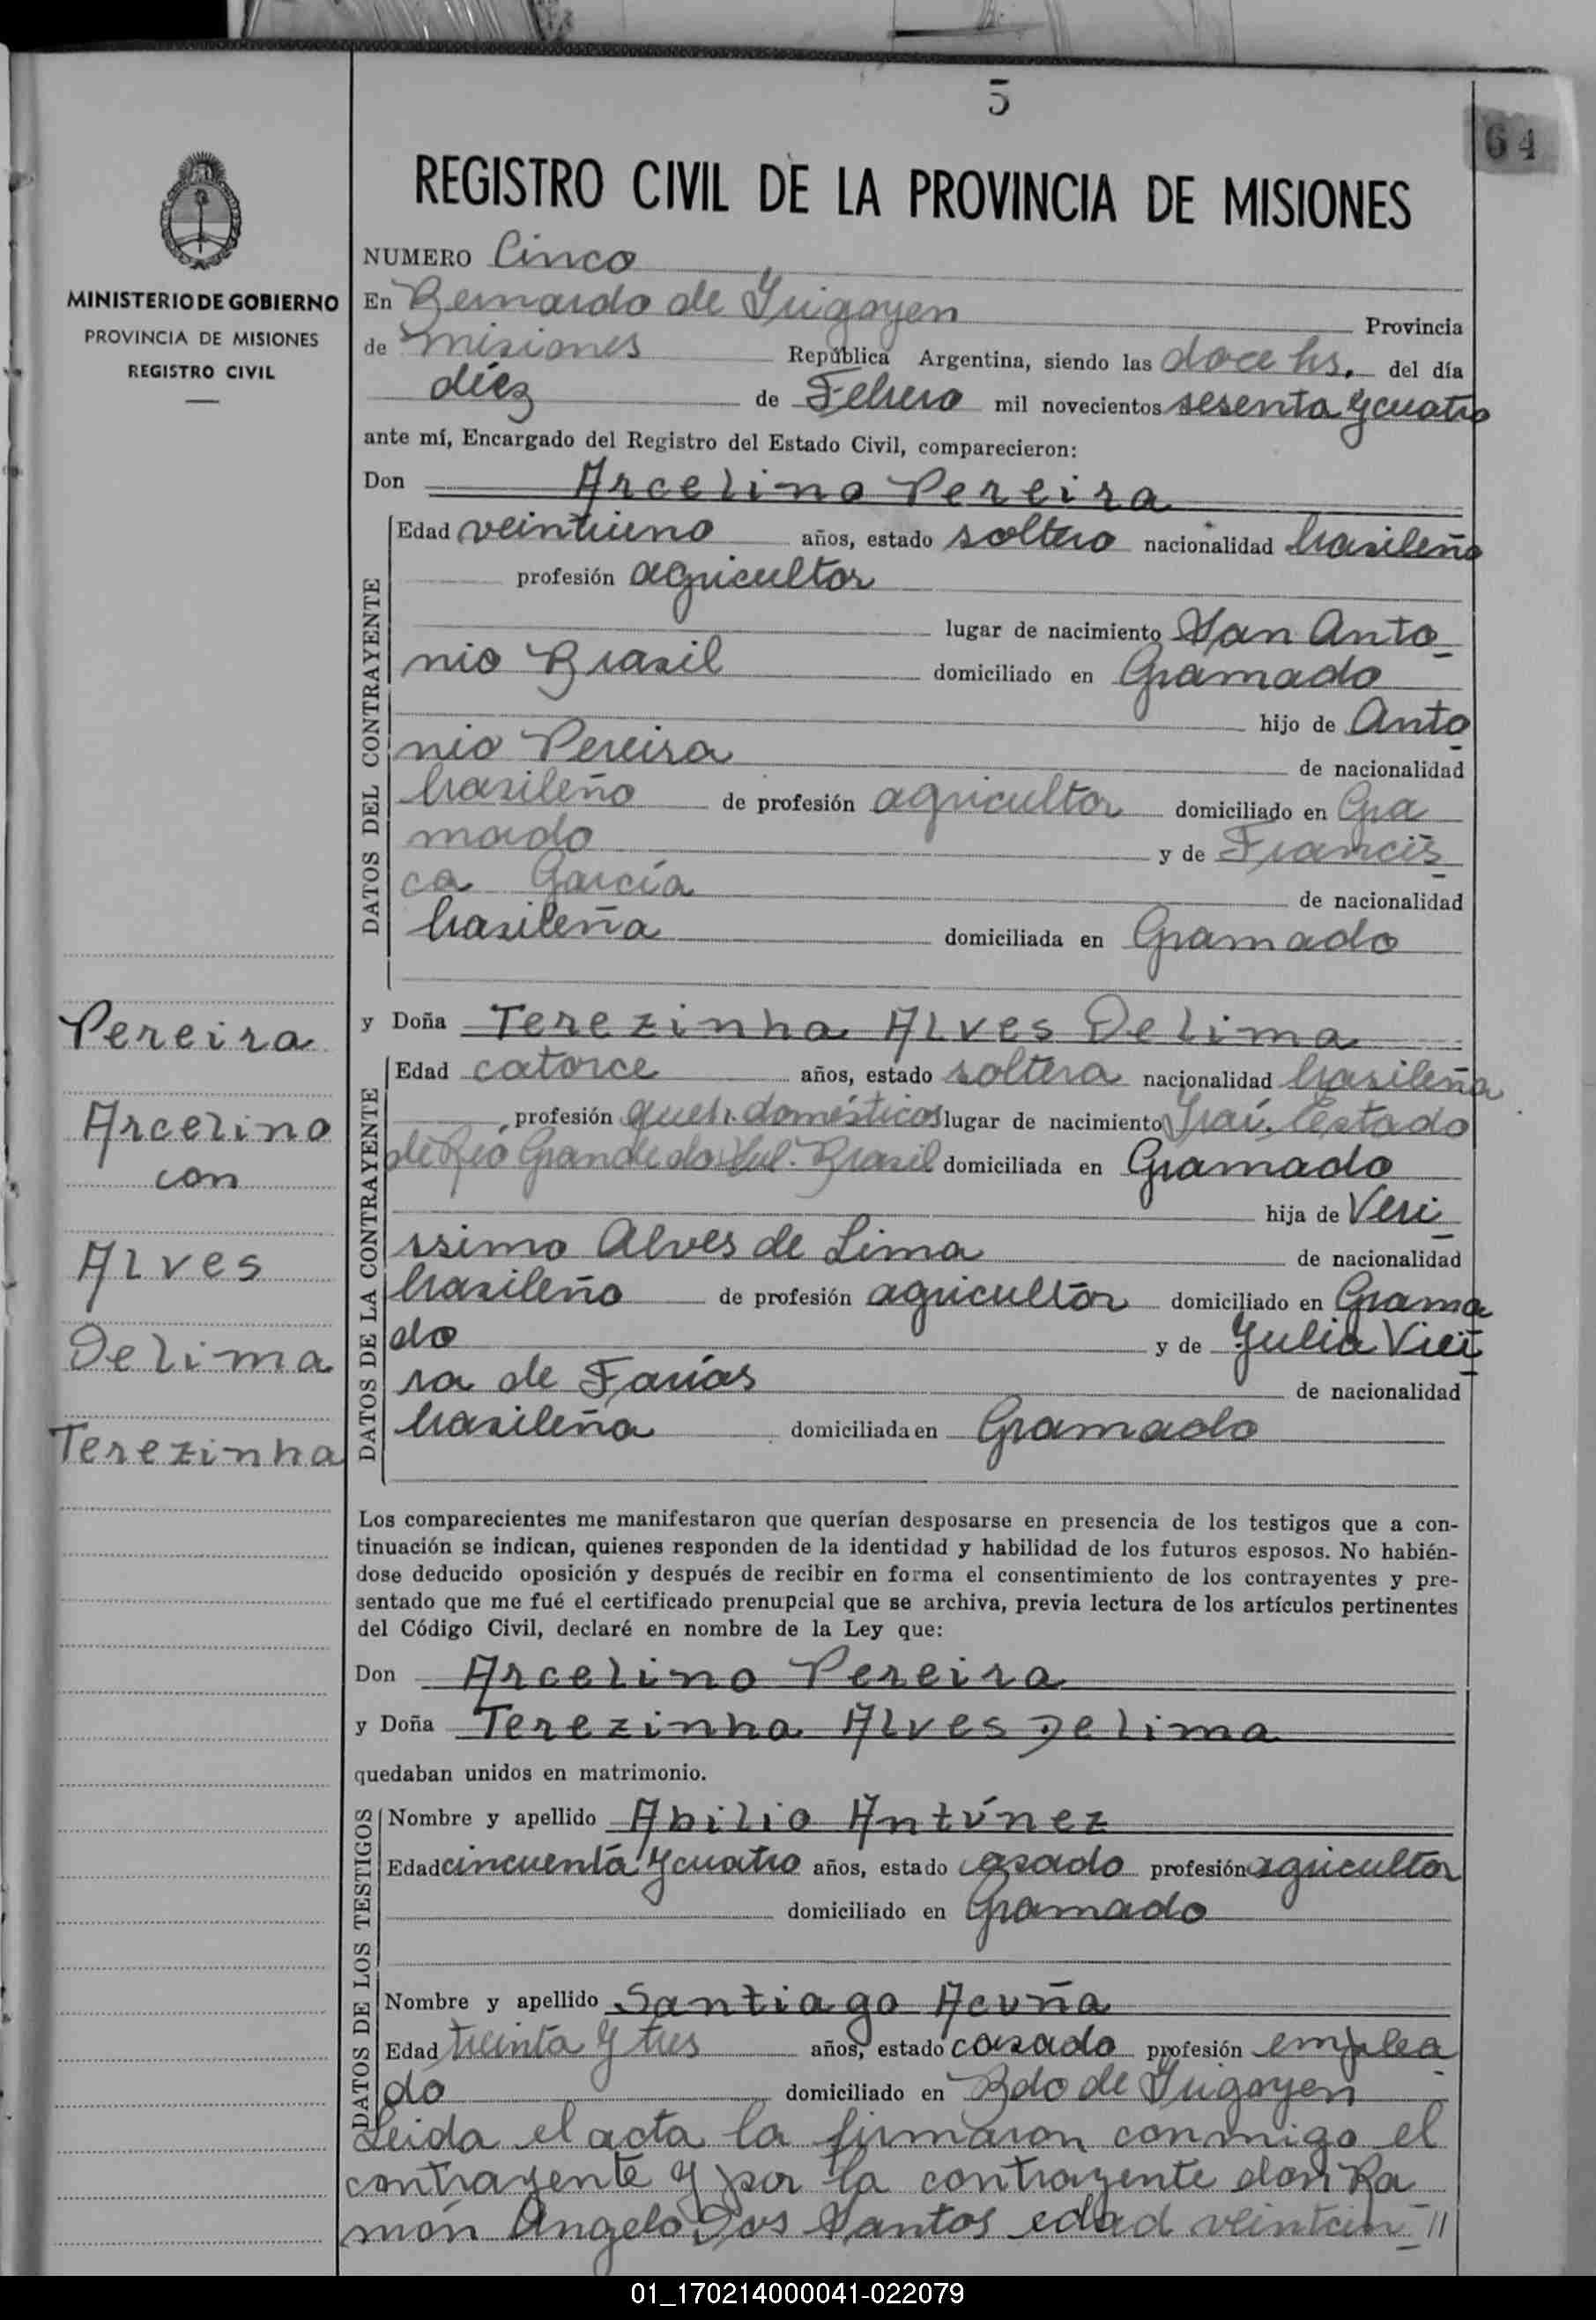 5
64
REGISTRO CIVIL DE LA PROVINCIA DE MISIONES
MINISTERIO DE GOBIERNO
PROVINCIA DE MISIONES
REGISTRO CIVIL
NUMERO Cinco
En Bernardo de Yrigoyen Provincia
de misiones República Argentina, siendo las doce hs. del día
diéz de Febrero mil novecientos sesenta y cuatro
ante mí, Encargado del Registro del Estado Civil, comparecieron:
Don Arcelino Pereira
DATOS DEL CONTRAYENTE
Edad veintiuno años, estado soltero nacionalidad brasileño
profesión agricultor
lugar de nacimiento San Anto
nio Brasil domiciliado en Gramado
hijo de Anto
nio Pereira de nacionalidad
brasileño de profesión agricultor domiciliado en Gra
mado y de Francis
ca García de nacionalidad
brasileña domiciliada en Gramado
Pereira
Arcelino
con
Alves
De lima
Terezinha
y Doña Terezinha Alves De lima
DATOS DE LA CONTRAYENTE
Edad catorce años, estado soltera nacionalidad brasileña
profesión queh. domésticos lugar de nacimiento Iraí. Estado
de Río Grande do Sul. Brasil domiciliada en Gramado
hija de Veri
ssimo Alves de Lima de nacionalidad
brasileño de profesión agricultor domiciliado en Grama
do y de Julia Viei
ra de Farías de nacionalidad
brasileña domiciliada en Gramado
Los comparecientes me manifestaron que querían desposarse en presencia de los testigos que a con-
tinuación se indican, quienes responden de la identidad y habilidad de los futuros esposos. No habién-
dose deducido oposición y después de recibir en forma el consentimiento de los contrayentes y pre-
sentado que me fué el certificado prenupcial que se archiva, previa lectura de los artículos pertinentes
del Código Civil, declaré en nombre de la Ley que:
Don Arcelino Pereira
y Doña Terezinha Alves De lima
quedaban unidos en matrimonio.
DATOS DE LOS TESTIGOS
Nombre y apellido Abilio Antúnez
Edad cincuenta y cuatro años, estado casado profesión agricultor
domiciliado en Gramado
Nombre y apellido Santiago Acuña
Edad treinta y tres años, estado casado profesión emplea
do domiciliado en Bdo de Yrigoyen
Leida el acta la firmaron conmigo el
contrayente y por la contrayente don Ra
món Angelo Dos Santos edad veintcin //
01_170214000041-022079